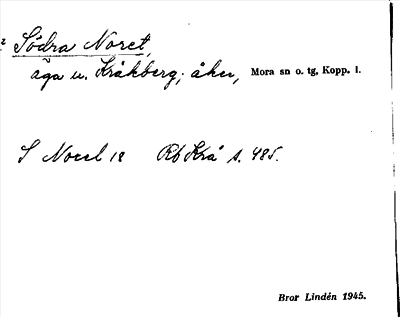 Södra Noret,
äga u. Kråkberg; åker, Mora sn o. tg, Kopp. l.
S Noret 18 Rb Krå s. 485.
Bror Lindén 1945.